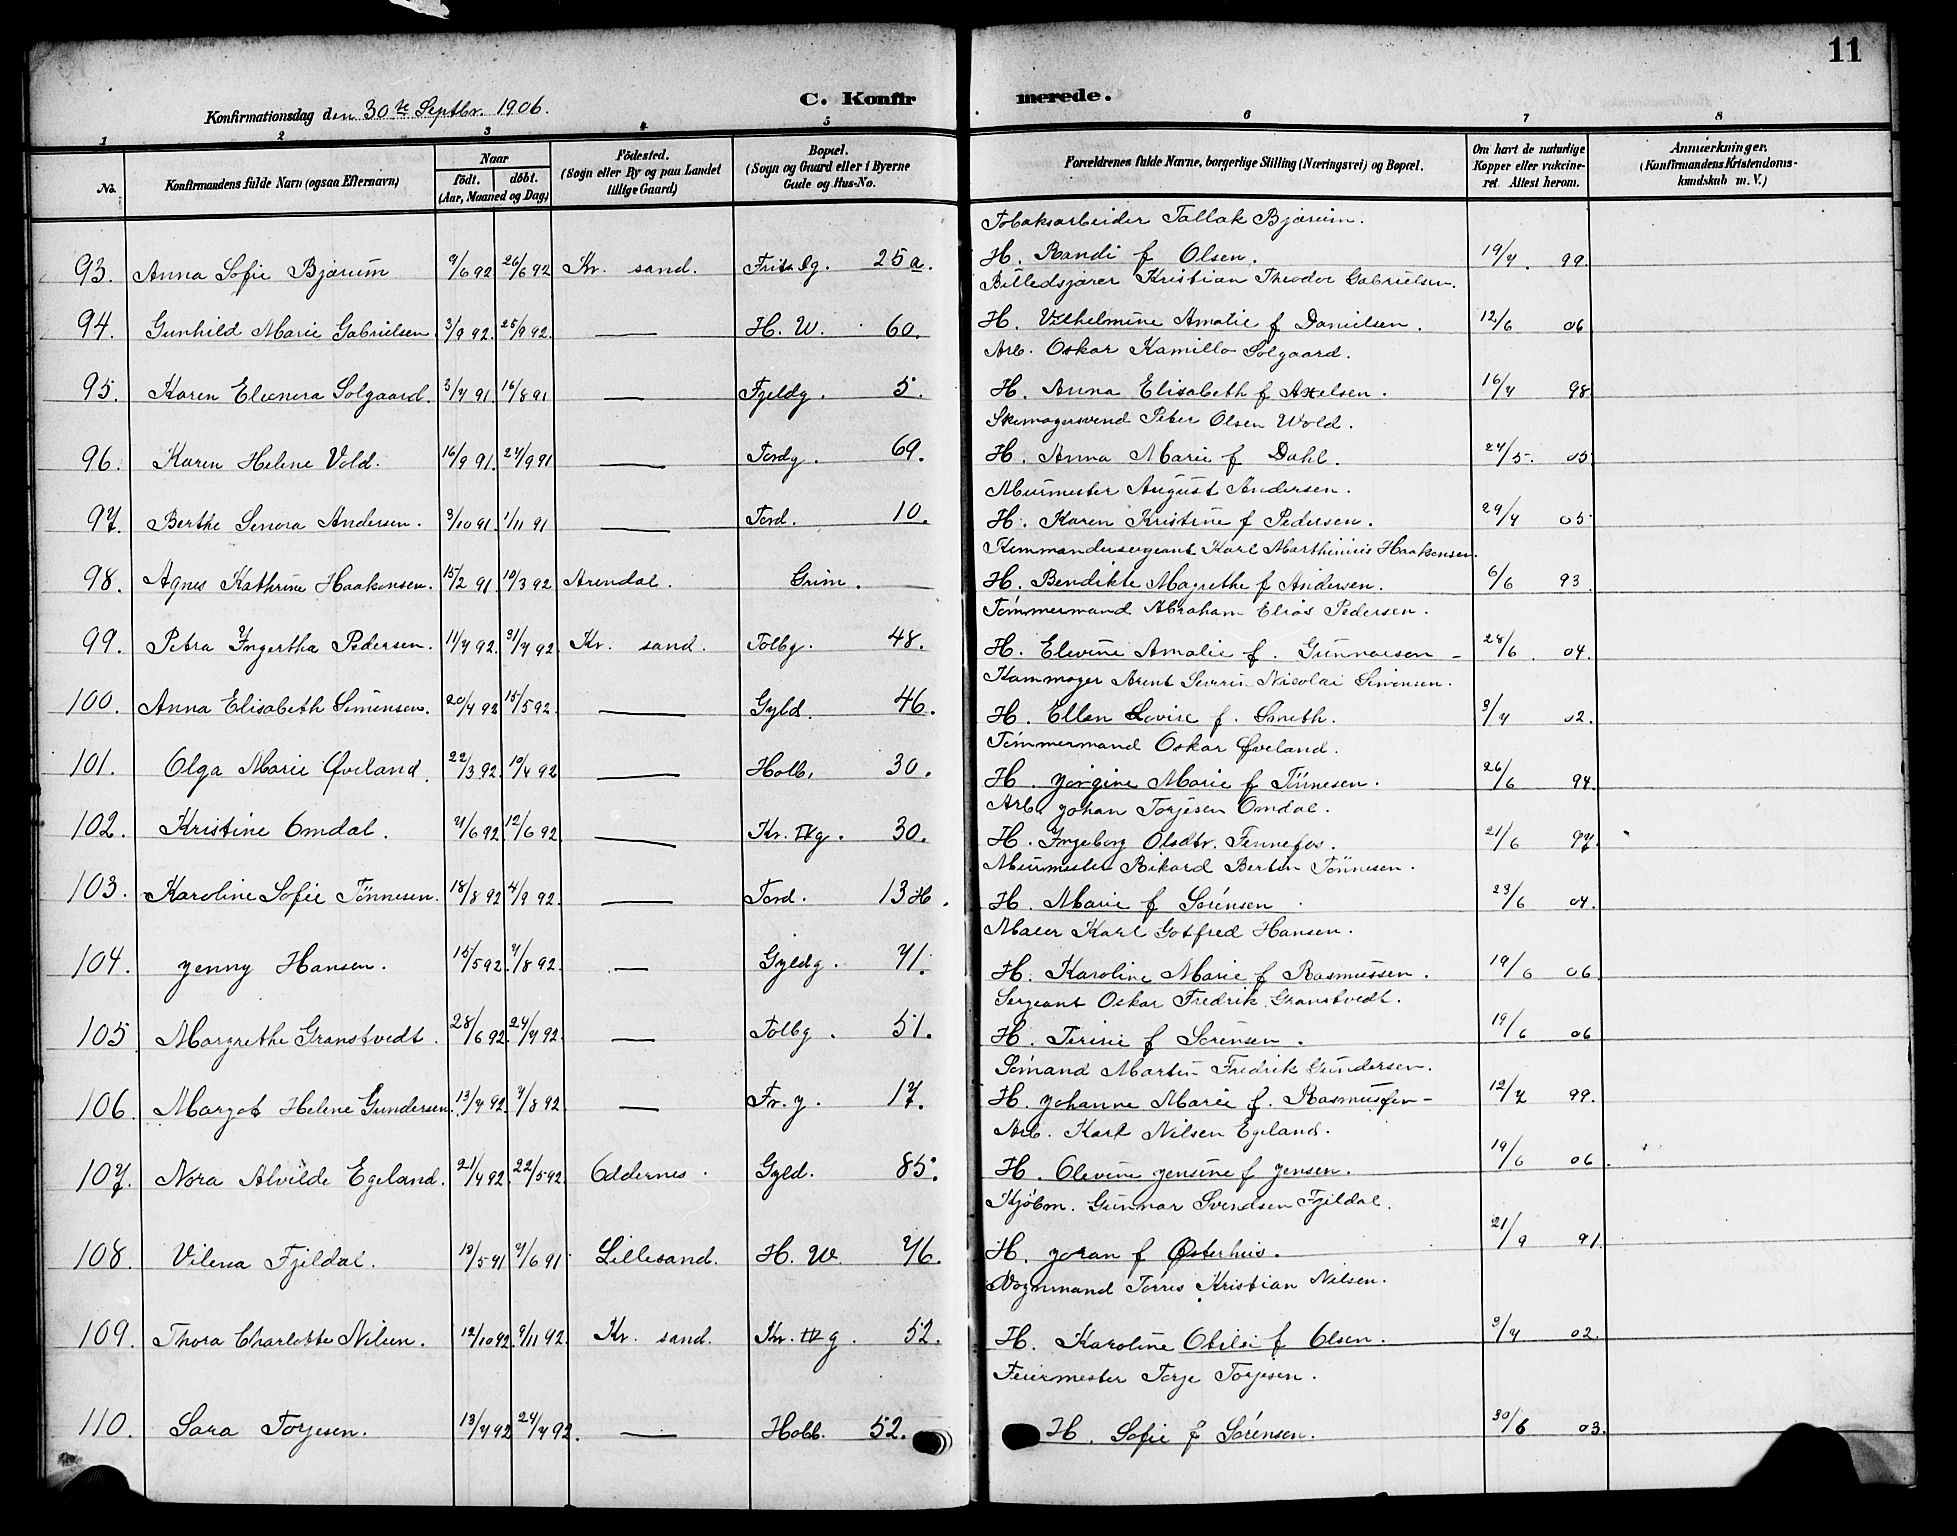 11
Konfirmationsdag den 30te Septbr. 1906.
C. Konfirmerede.
1 2 3 4 5 6 7 8
No.
Konfirmandens fulde Navn (ogsaa Efternavn)
Naar
födt. döbt.
(Aar, Maaned og Dag)
Födested.
(Sogn eller By og paa Landet
tillige Gaard)
Bopæl.
(Sogn og Gaard eller i Byerne
Gade og Hus-No.
Forældrenes fulde Navne, borgerlige Stilling (Næringsvei) og Bopæl.
Om havt de naturlige
Kopper eller vakcine-
ret. Attest herom.
Anmærkninger.
(Konfirmandens Kristendoms-
kundskab m. V.)
Tobaksarbeider Tallak Bjærum.
93. Anna Sofie Bjærum 9/6 92 26/6 92 Kr. sand. 25a. H. Randi f Olsen. 19/7. 99.
Billedskjærer Kristian Theodor Gabrielsen.
94. Gunhild Marie Gabrielsen. 3/9 92. 25/9 92. — H. W. 60. H. Vilhelmine Amalie f Danielsen. 12/6 06
Arb. Oskar Kamillo Solgaard.
95. Karen Eleonora Solgaard. 3/7 91 16/8 91 — Fjeldg. 5. H. Anna Elisabeth f Axelsen. 16/7 98.
Skomagersvend Peter Olsen Wold.
96. Karen Helene Vold. 16/9 91. 27/9 91 — Tordg. 69. H. Anna Marie f Dahl. 24/5. 05.
Murmester August Andersen.
97. Berthe Senora Andersen. 3/10 91. 1/11 91 — Tord. 10. H. Karen Kristine f Pedersen. 29/7 05
Kommandersergeant Karl Marthinius Haakonsen.
98. Agnes Kathrine Haakonsen. 15/2 91. 10/3 92 Arendal. Grim. — H. Bendikte Magrethe f Andersen. 6/6 93.
Tömmermand Abraham Elias Pedersen.
99. Petra Ingertha Pedersen. 11/7 92. 31/7 92. Kr. sand. Tolbg. 48. H. Elevine Amalie f. Gunnarsen – 28/6. 04.
Kammager Arent Severin Nicolai Simonsen.
100. Anna Elisabeth Simonsen. 20/4 92 15/5 92. — Gyld. 46. H. Ellen Lovise f. Smith. 3/7 02.
Tömmermand Oskar Øveland.
101. Olga Marie Øveland. 22/3 92. 10/4 92 — Holb. 30. H. Jörgine Marie f Tönnesen. 26/6 94.
Arb. Johan Torjesen Omdal.
102. Kristine Omdal. 7/6 92 12/6 92 — Kr. IVg. 30. H. Ingeborg Olsdtr. Fennefos. 21/6 97.
Murmester Rikard Bertin Tönnesen.
103. Karoline Sofie Tönnesen. 18/8 92 4/9 92. — Tord. 13 H. H. Marie f Sörensen 23/6 04.
Maler Karl Gotfred Hansen.
104. Jenny Hansen. 15/5 92. 7/8 92. — Gyldg. 71. H. Karoline Marie f Rasmussen. 19/6 06.
Sergeant Oskar Fredrik Granstvedt.
105 Margrethe Granstvedt. 28/6 92. 24/7 92. — Tolbg. 51. H. Terine f Sörensen. 19/6 06
Sömand Martin Fredrik Gundersen.
106. Margot Helene Gundersen. 13/7 92. 7/8 92. — Fr. g. 17. H. Johanne Marie f. Rasmussen – 12/7 99.
Arb. Karl Nilsen Egeland.
107. Nora Alvilde Egeland. 21/4 92. 22/5 92. Oddernes. Gyld. 85. H. Olevine Jensine f Jensen. 19/6 06.
Kjöbm. Gunnar Svendsen Fjeldal.
108. Vilena Fjeldal. 13/5 91 7/6 91 Lillesand. H. W. 76. H. Joran f Østerhus. 21/9 91.
Vognmand Torres Kristian Nilsen.
109. Thora Charlotte Nilsen. 12/10 92. 9/11 92. Kr. sand. Kr. IVg. 52. H. Karoline Otilie f Olsen. 3/7 02.
Feiermester Terje Torjesen.
110. Sara Torjesen. 13/7 92 24/7 92. — Holb. 52. H. Sofie f Sörensen. 30/6 03.